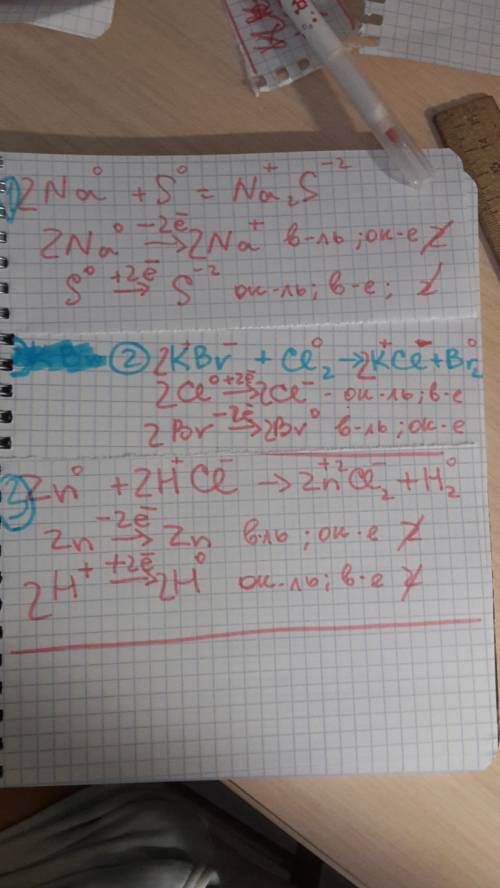 1 2Na⁰ + S⁰ = Na₂⁺S⁻²
2Na⁰ –2ē→ 2Na⁺ в-ль; ок-е
S⁰ +2ē→ S⁻² ок-ль; в-е;
② 2K⁺Br⁻ + Cl₂⁰ → 2K⁺Cl⁻ + Br₂⁰
2Cl⁰ +2ē→ 2Cl⁻ - ок-ль; в-е
2Br⁻ –2ē→ 2Br⁰ в-ль; ок-е
3 Zn⁰ + 2H⁺Cl⁻ → Zn⁺²Cl₂⁻ + H₂⁰
Zn –2ē→ Zn в-ль; ок-е
2H⁺ +2ē→ 2H⁰ ок-ль; в-е